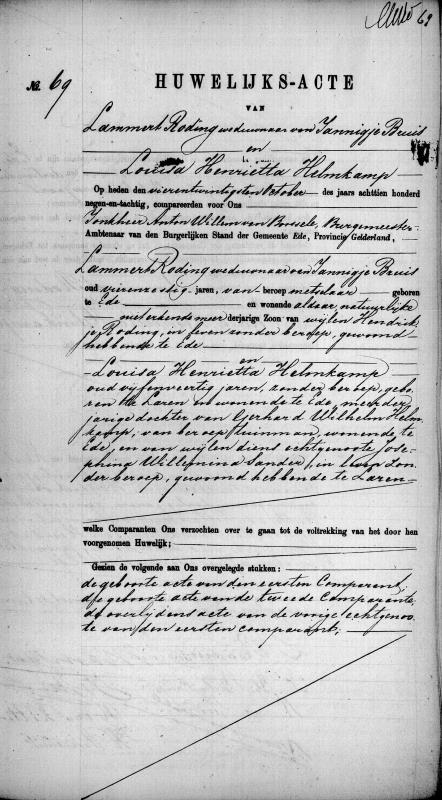 69
No. 69
HUWELIJKS-ACTE
VAN
Lammert Roding weduwnaar van Jannigje Bruis
en
Louisa Henrietta Helmkamp
Op heden den vierentwintigsten October des jaars achttien honderd
negen-en-tachtig, compareerden voor Ons
Jonkheer Anton Willem van Borssele, Burgemeester
Ambtenaar van den Burgerlijken Stand der Gemeente Ede, Provincie Gelderland,
Lammert Roding weduwnaar van Jannigje Bruis
oud vierenzestig jaren, van beroep metselaar geboren
te Ede en wonende aldaar, natuurlijke
niet erkende meerderjarige Zoon van wijlen Hendrik-
je Roding, in leven zonder beroep, gewoond
hebbende te Ede
en
Louisa Henrietta Helmkamp
oud vijfenveertig jaren, zonder beroep, gebo-
ren te Laren en wonende te Ede, meerder
jarige dochter van Gerhard Wilhelm Helm-
kamp, van beroep tuinman, wonende te
Ede, en van wijlen diens echtgenoote Jose-
phina Willemina Sander, in leven zon-
der beroep, gewoond hebbende te Laren
welke Comparanten Ons verzochten over te gaan tot de voltrekking van het door hen
voorgenomen Huwelijk;
Gezien de volgende aan Ons overgelegde stukken:
de geboorte acte van den eersten Comparant,
de geboorte acte van de tweede Comparante,
de overlijdens acte van de vorige echtgenoo-
te van den eersten comparant;